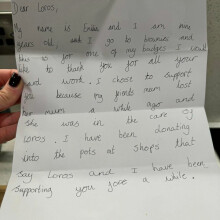 Dear Loros,
My name is Emilia and I am nine
years old, and I go to brownies and
this is for one of my badges. I want
like to thank you for all your
hard work. I chose to support
you because my friends mam lost
her mum a while ago and
She was in the care of
Loros. I have been donating
into the pots at shops that
say Loros and I have been
supporting you for a while.